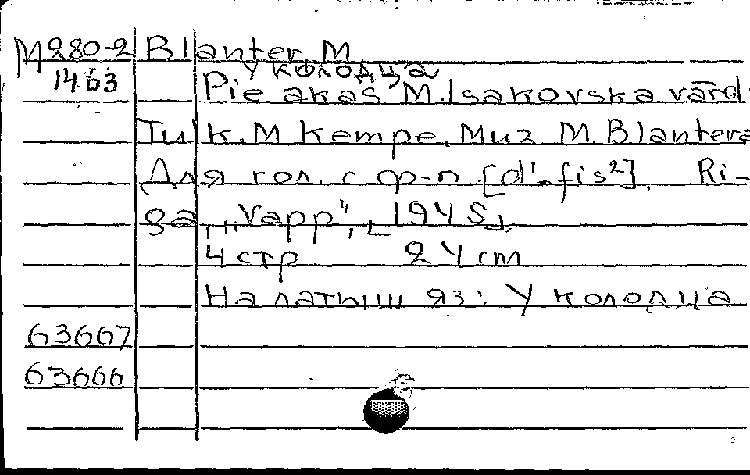 M280-2 Blanter, M.
У колодца
1463 Pie akas M.Isakovska vārd.
Tulk. M Kempe. Muz M. Blantera
Для гол. с ф-п [d'-fis²]. Ri-
ga, "Vapp", [1945].
4 стр 24 cm
На латыш яз: У колодца
63667
63666